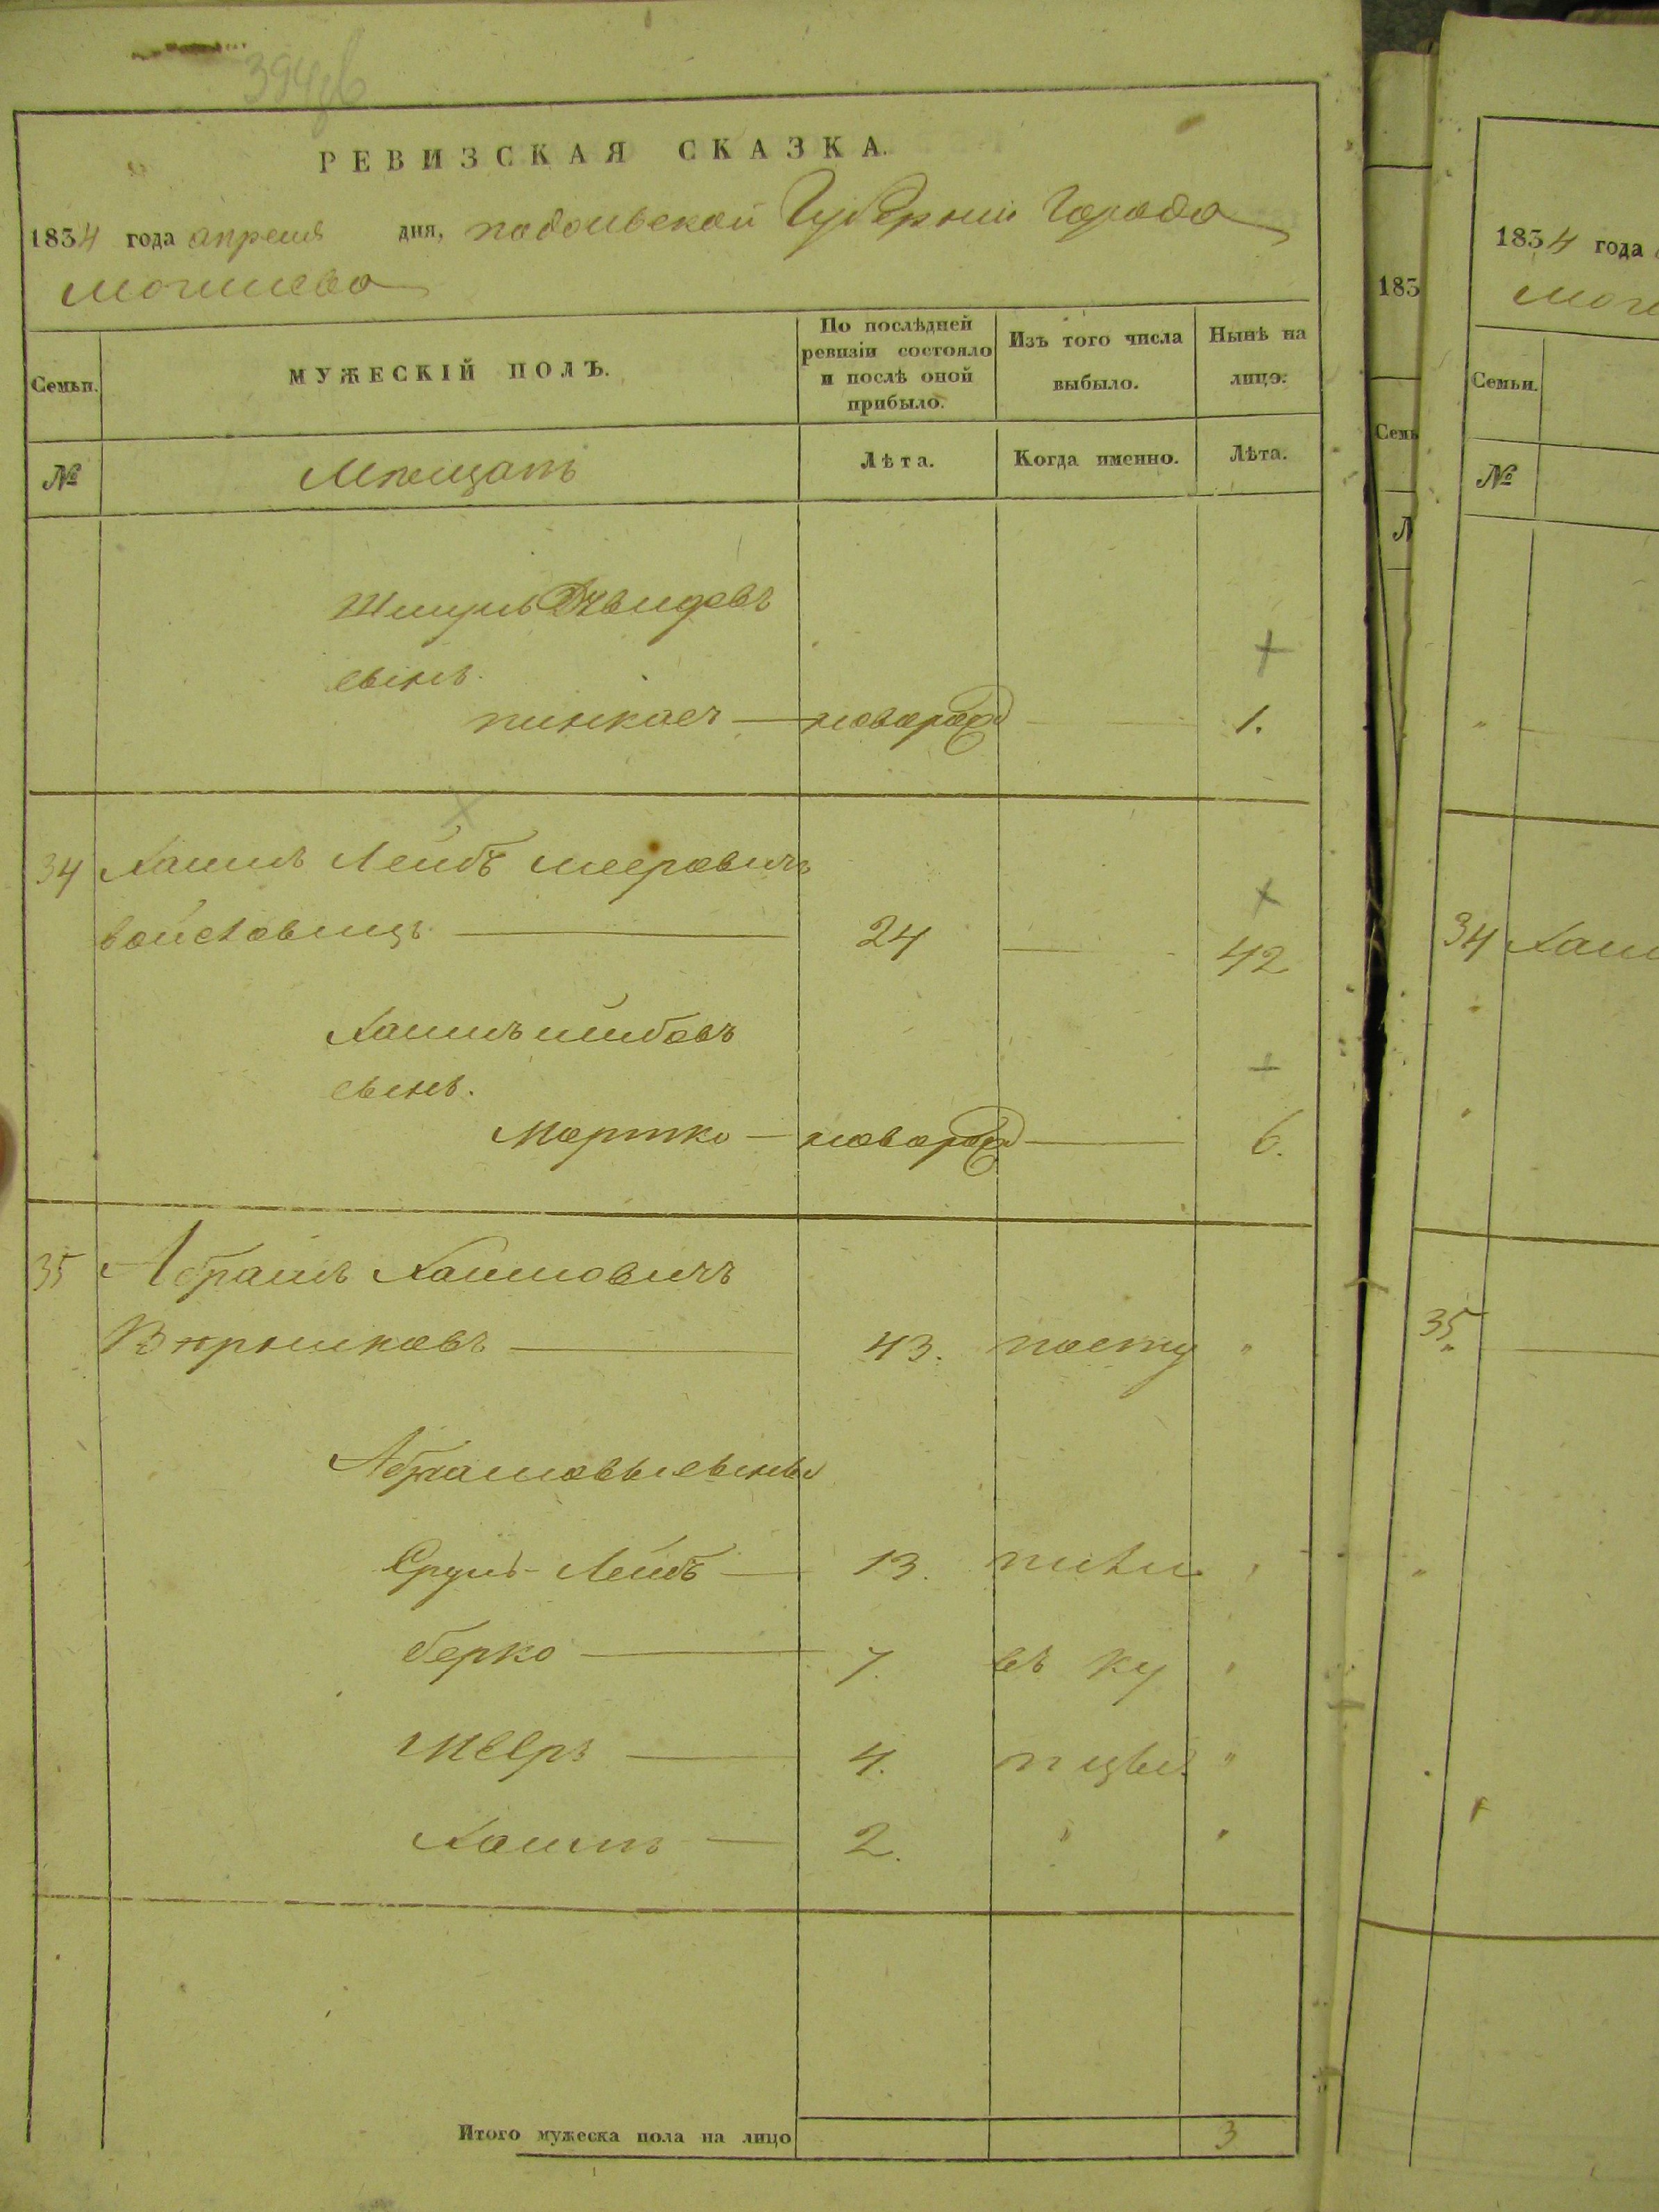 394
РЕВИЗСКАЯ СКАЗКА.
1834 года апреля дня, подольской Губернии Города
могилева
Семьи. МУЖЕСКІЙ ПОЛЪ. По послѣдней ревизіи состояло и послѣ оной прибыло. Изъ того числа выбыло. Нынѣ на лицо.
№ Мещанъ Лѣта. Когда именно. Лѣта.
Шмуль
сынъ.
пинкас новорож 1.
34 Хаимъ Лейбъ мееровичъ
24 42
Хаимъ лейбовъ
сынъ.
Мортко новорож 6.
35 Абрамъ Хаимовичъ
43. посту "
Абрамовы сыны
Срулъ-Лейбъ 13. пили
берко 7. въ ку
Мееръ 4. пцы. "
Хаимъ 2. " "
Итого мужеска пола на лицо 3
1834 года
Моги
183
Семьи.
Семь
№
34 Хаим
35